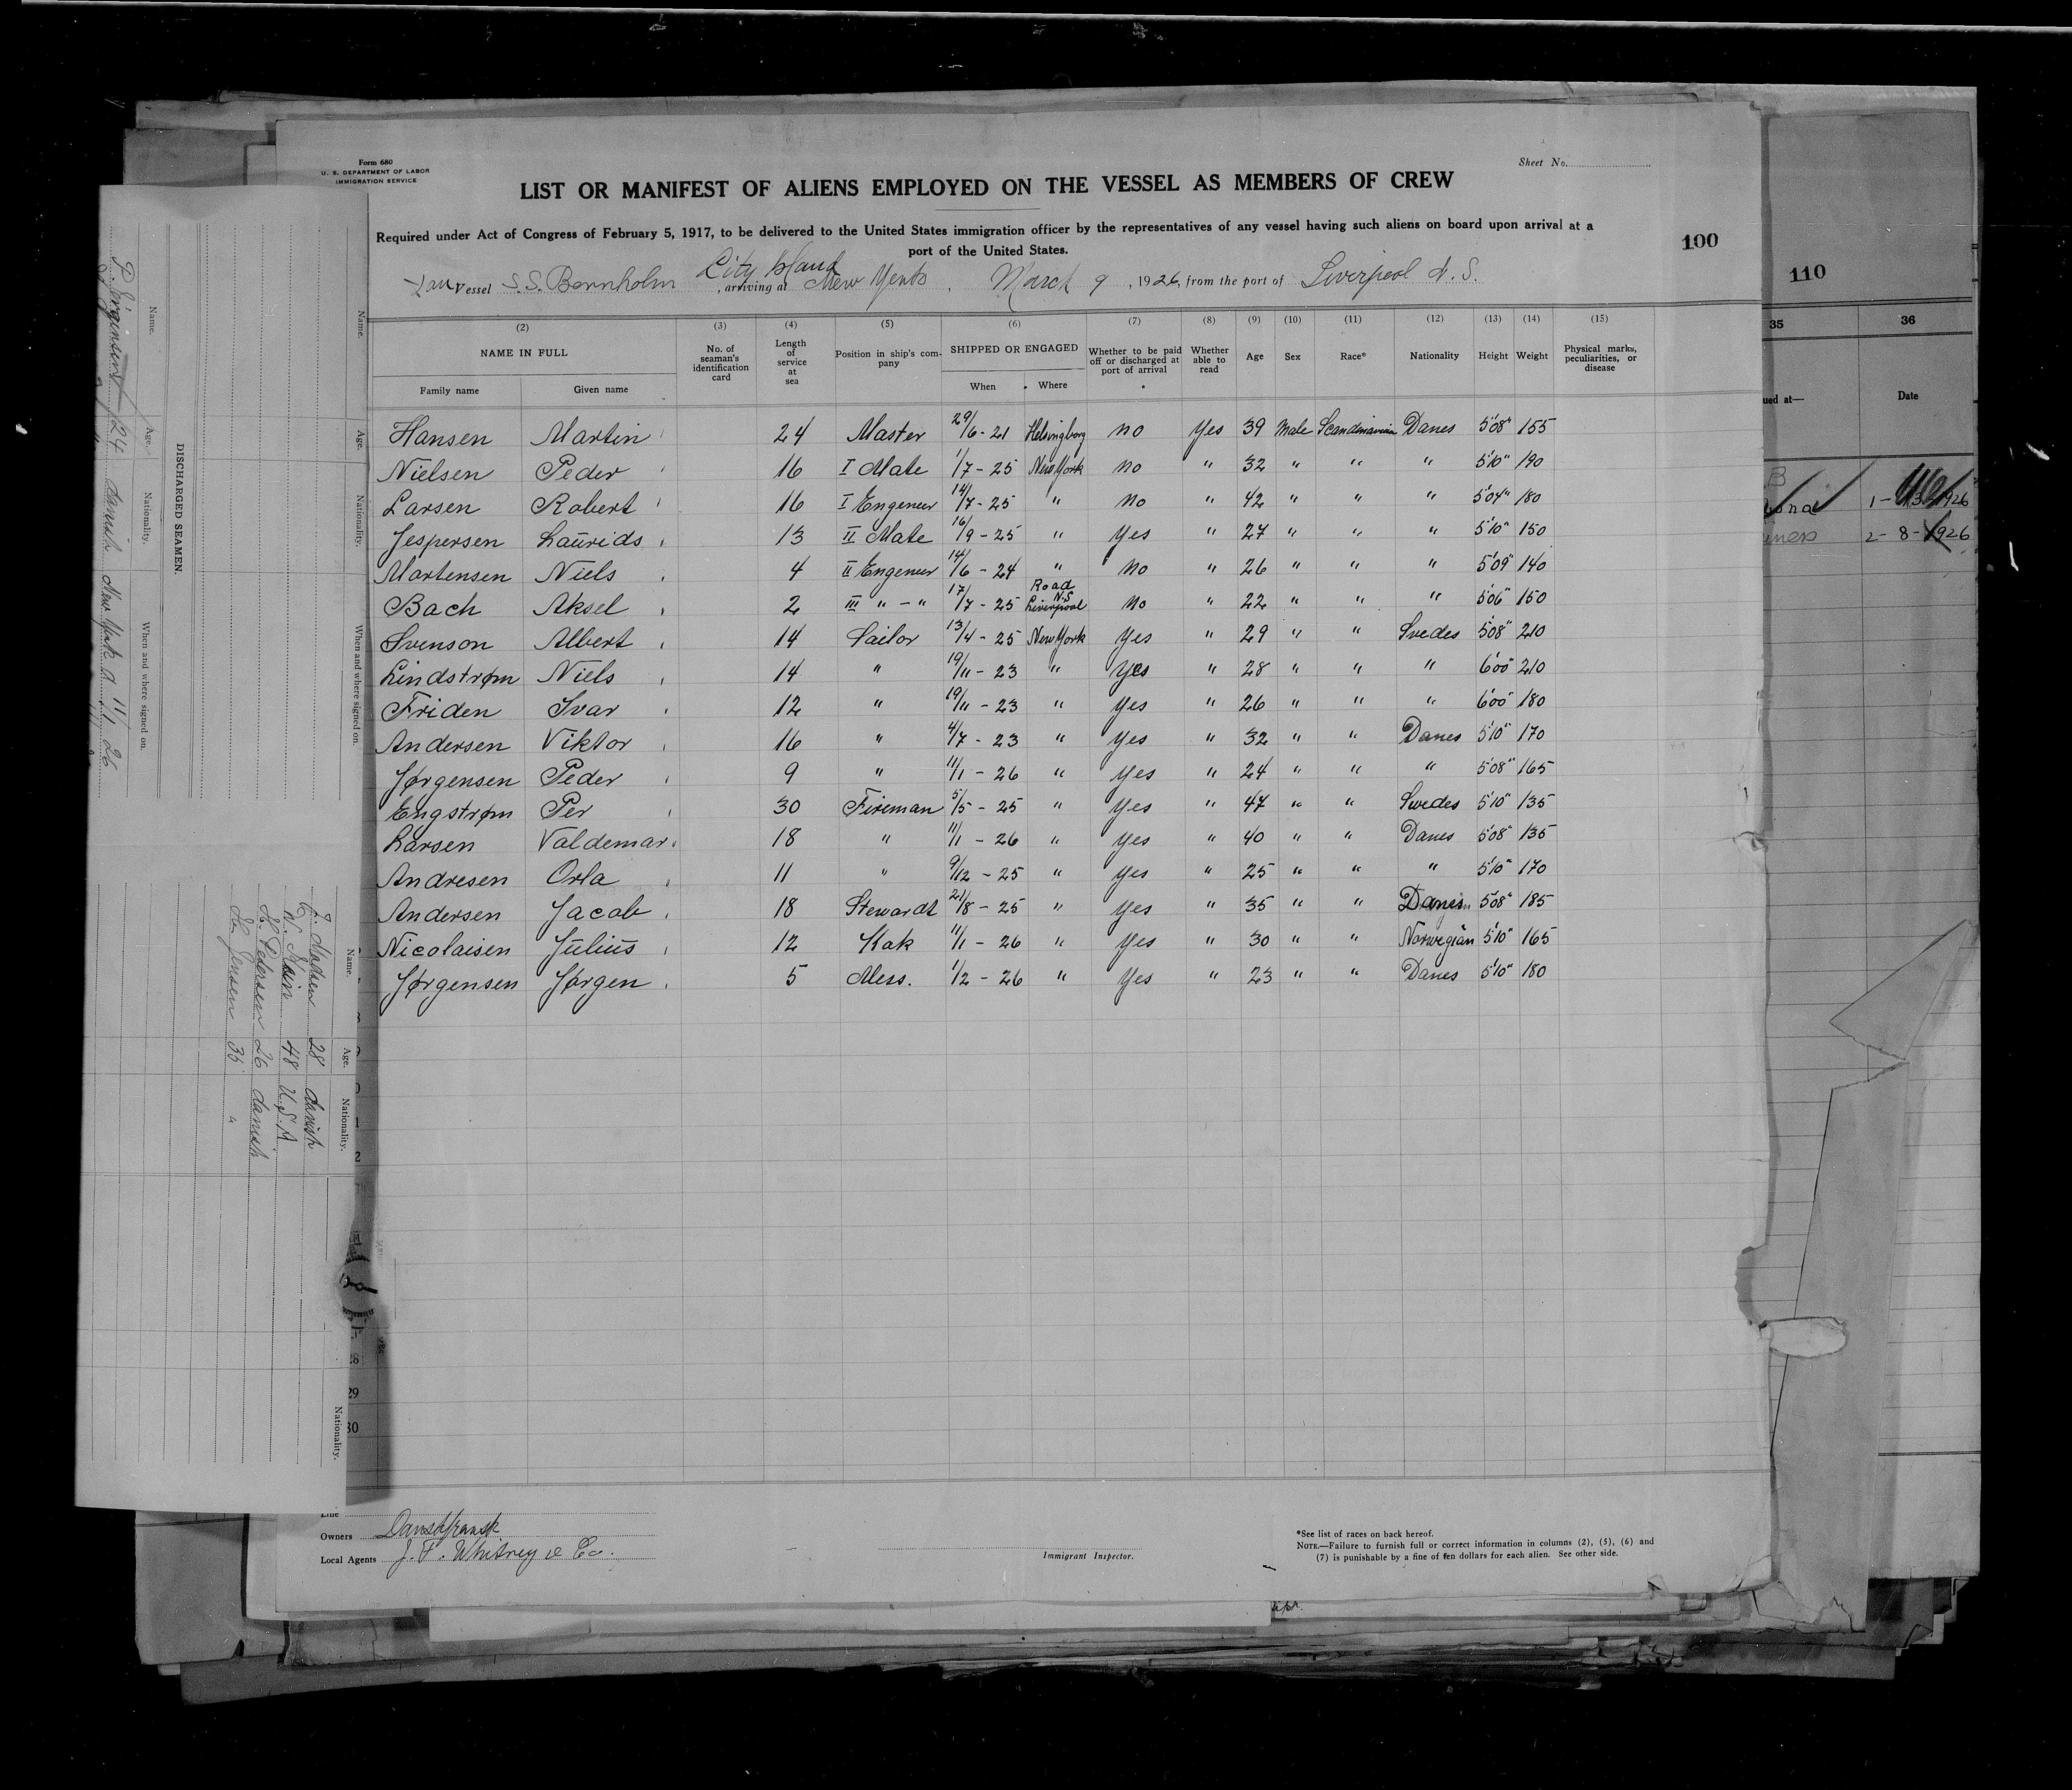 Form 680
U. S. DEPARTMENT OF LABOR
IMMIGRATION SERVICE
Sheet No.
LIST OR MANIFEST OF ALIENS EMPLOYED ON THE VESSEL AS MEMBERS OF CREW
Required under Act of Congress of February 5, 1917, to be delivered to the United States immigration officer by the representatives of any vessel having such aliens on board upon arrival at a
port of the United States.
100
City Island
Dan Vessel S.S. Bornholm, arriving at New York, March 9, 1926, from the port of Liverpool N.S.
(2) (3) (4) (5) (6) (7) (8) (9) (10) (11) (12) (13) (14) (15)
NAME IN FULL
Family name Given name
No. of seaman's identification card
Length of service at sea
Position in ship's company
SHIPPED OR ENGAGED
When Where
Whether to be paid off or discharged at port of arrival
Whether able to read
Age Sex Race* Nationality Height Weight
Physical marks, peculiarities, or disease
Hansen Martin 24 Master 29/6-21 Helsingborg no Yes 39 Male Scandinavian Danes 5'08" 155
Nielsen Peder 16 I Mate 1/7-25 New York no " 32 " " " 5'10" 190
Larsen Robert 16 I Engeneer 14/7-25 " no " 42 " " " 5'04" 180
Jespersen Laurids 13 II Mate 16/9-25 " Yes " 27 " " " 5'10" 150
Mortensen Niels 4 II Engeneer 14/6-24 " no " 26 " " " 5'09" 140
Bach Aksel 2 III " - " 17/7-25 Road Liverpool N.S no " 22 " " " 5'06" 150
Svenson Albert 14 Sailor 13/4-25 New York Yes " 29 " " Svedes 5'08" 210
Lindstrøm Niels 14 " 19/11-23 " Yes " 28 " " " 6'00" 210
Friden Ivar 12 " 19/11-23 " Yes " 26 " " " 6'00" 180
Andersen Viktor 16 " 4/7-23 " Yes " 32 " " Danes 5'10" 170
Jørgensen Peder 9 " 11/1-26 " Yes " 24 " " " 5'08" 165
Engstrøm Per 30 Fireman 5/5-25 " Yes " 47 " " Swedes 5'10" 135
Larsen Valdemar 18 " 11/1-26 " Yes " 40 " " Danes 5'08" 135
Andresen Orla 11 " 9/12-25 " Yes " 25 " " " 5'10" 170
Andersen Jacob 18 Stewardt 21/8-25 " Yes " 35 " " 5'08" 185
Nicolaisen Julius 12 Kok 11/1-26 " Yes " 30 " " Norwegian 5'10" 165
Jørgensen Jørgen 5 Mess. 1/2-26 " Yes " 23 " " Danes 5'10" 180
28
29
30
Line
Owners Danskfransk
Local Agents J. F. Whitney & Co.
Immigrant Inspector.
*See list of races on back hereof.
NOTE.—Failure to furnish full or correct information in columns (2), (5), (6) and
(7) is punishable by a fine of ten dollars for each alien. See other side.
Name. Age. Nationality. When and where signed on.
DISCHARGED SEAMEN.
Name. Age. Nationality. When and where signed on.
24 danish New York d 11/1 26
Name. Age. Nationality.
Madsen 28 danish
48 U.S.A.
H. Pedersen 26 danish
H. Jensen 35 "
Nationality.
110
35 36
ued at— Date
1926
2-8-1926